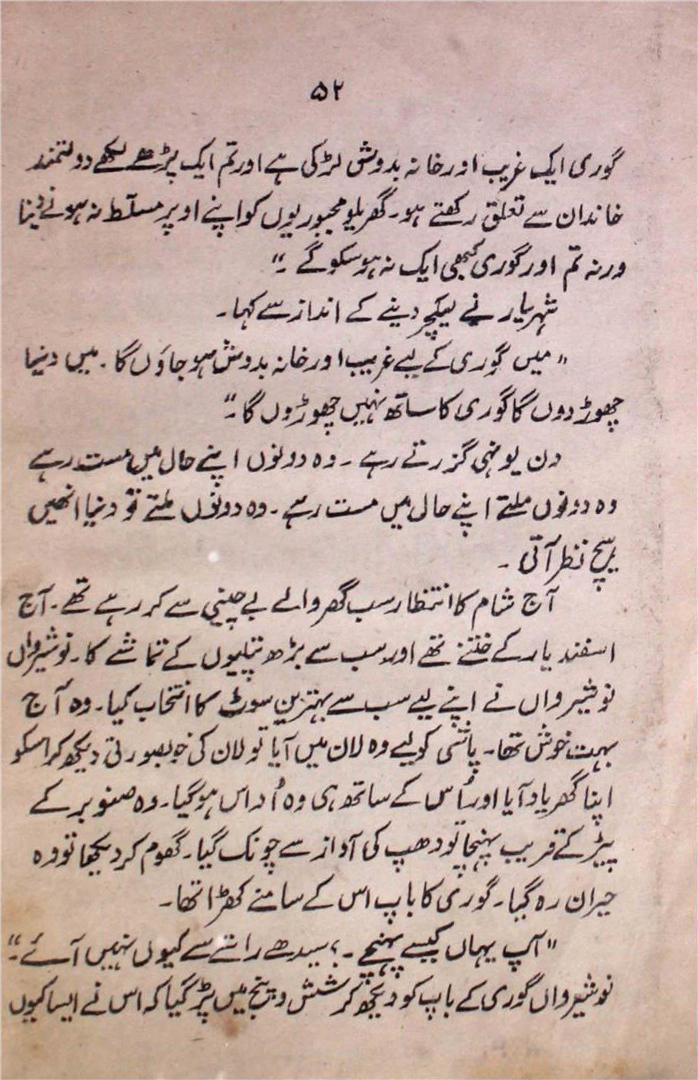 ۵۲
گوری ایک غریب اور خانہ بدوش لڑکی ہے اور تم ایک پڑھے لکھے دولتمند
خاندان سے تعلق رکھتے ہو۔ گھریلو مجبوریوں کو اپنے اوپر مسلّط نہ ہونے دینا
ورنہ تم اور گوری کبھی ایک نہ ہو سکو گے ۔"
شہریار نے لیکچر دینے کے انداز سے کہا۔
"میں گوری کے لیے غریب اور خانہ بدوش ہو جاؤں گا۔ میں دنیا
چھوڑ دوں گا گوری کا ساتھ نہیں چھوڑوں گا۔"
دن یونہی گزرتے رہے ۔ وہ دونوں اپنے حال میں مست رہے
وہ دونوں ملتے اپنے حال میں مست رہے ۔ وہ دونوں ملتے تو دنیا انھیں
ہیچ نظر آتی ۔
آج شام کا انتظار سب گھر والے بے چینی سے کر رہے تھے ۔ آج
اسفندیار کے ختنے تھے اور سب سے بڑھ پتلیوں کے تماشے کا ۔ نوشیرواں
نوشیرواں نے اپنے لیے سب سے بہترین سوٹ کا انتخاب کیا ۔ وہ آج
بہت خوش تھا۔ پاشی کو لیے وہ لان میں آیا تو لان کی خوبصورتی دیکھ کر اسکو
اپنا گھر یاد آیا اور اُس کے ساتھ ہی وہ اُداس ہو گیا۔ وہ صنوبر کے
پیڑ کے قریب پہنچا تو دھپ کی آواز سے چونک گیا۔ گھوم کر دیکھا تو وہ
حیران رہ گیا۔ گوری کا باپ اس کے سامنے کھڑا تھا۔
"آپ یہاں کیسے پہنچے ۔؟ سیدھے راستے سے کیوں نہیں آئے ۔"
نوشیرواں گوری کے باپ کو دیکھ کر شش و پنج میں پڑ گیا کہ اس نے ایسا کیوں